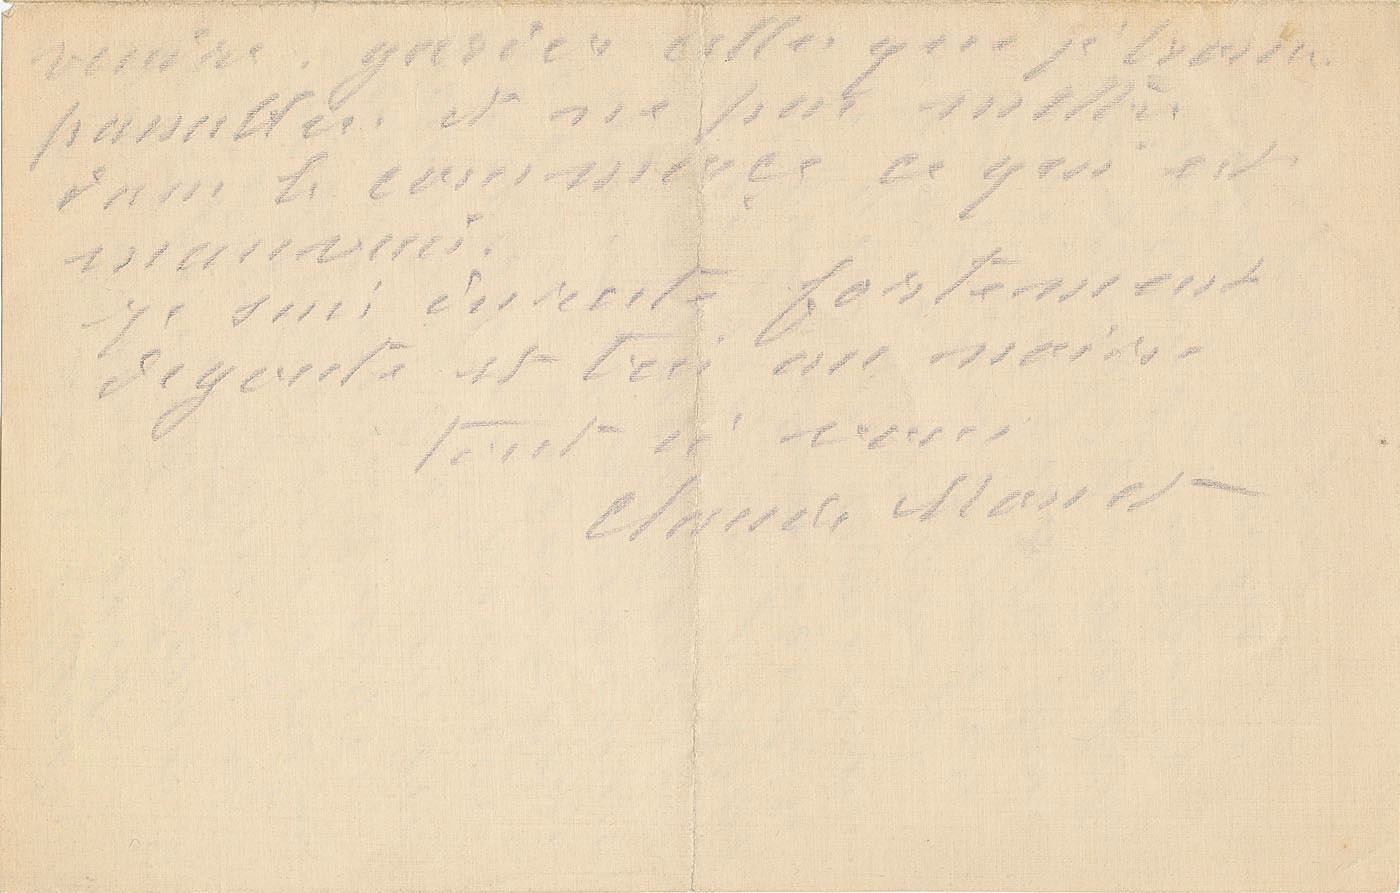 venir. garder celles que je trouve
passables et ne pas mettre
dans le commerce ce qui est
mauvais.
Je suis du reste fortement
degouté et très au noir.
Tout à vous
Claude Monet